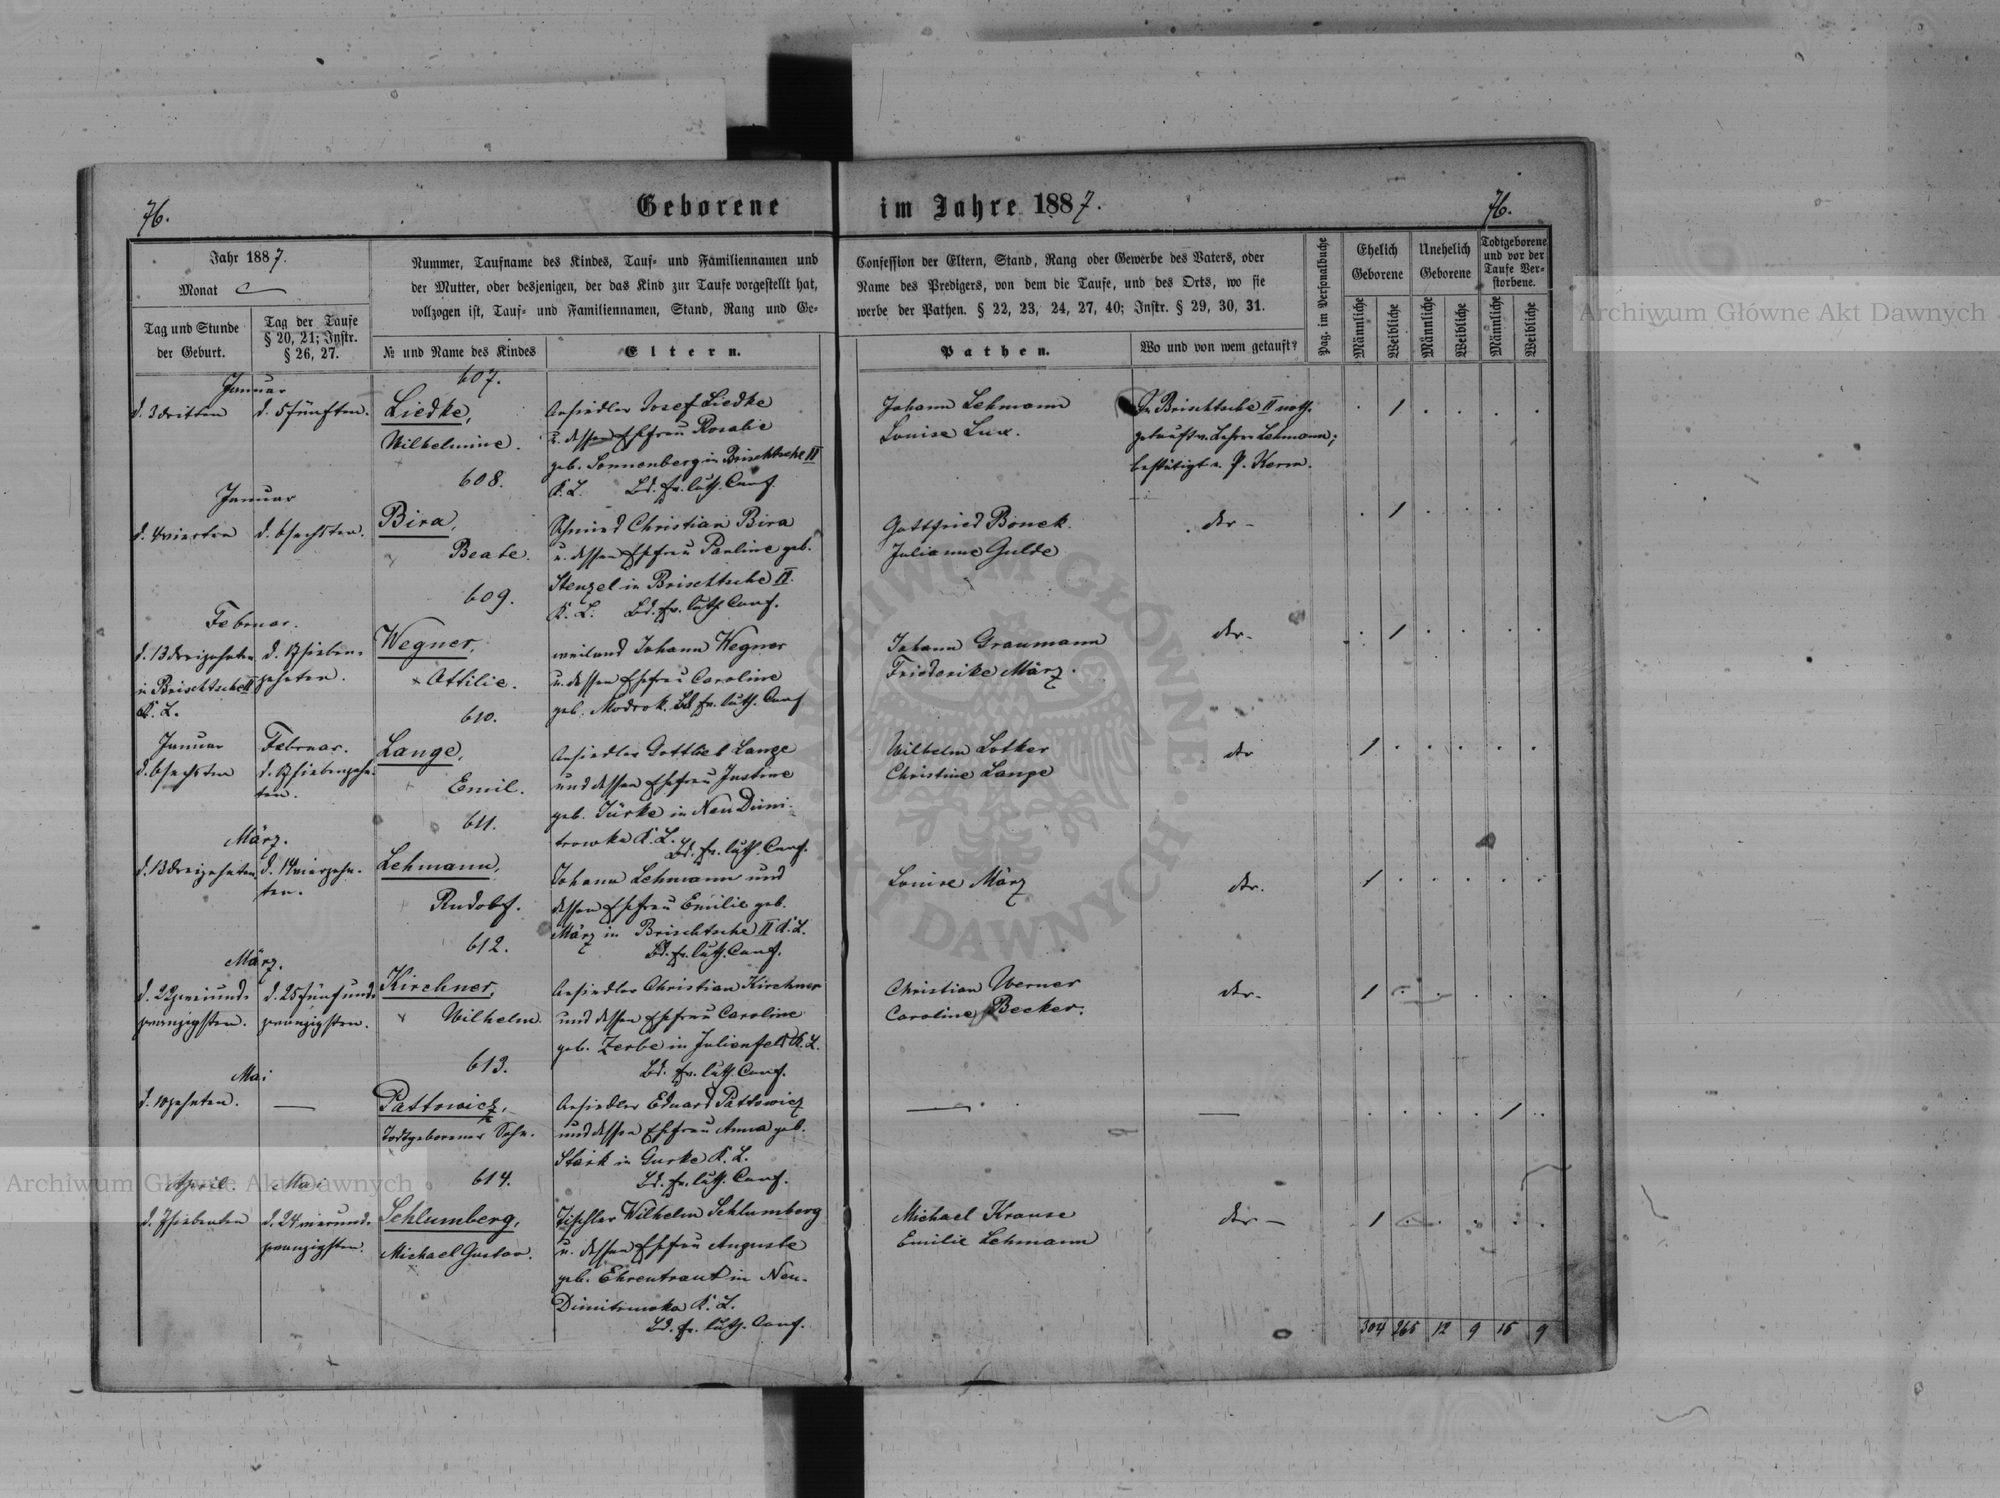 76.
Geborene im Jahre 1887.
76.
Jahr 1887.
Monat
Tag und Stunde
der Geburt.
Tag der Taufe
§ 20, 21; Instr.
§ 26, 27.
Nummer, Taufname des Kindes, Tauf- und Familiennamen und
der Mutter, oder desjenigen, der das Kind zur Taufe vorgestellt hat,
vollzogen ist, Tauf- und Familiennamen, Stand, Rang und Ge-
№ und Name des Kindes
Eltern.
Confession der Eltern, Stand, Rang oder Gewerbe des Vaters, oder
Name des Predigers, von dem die Taufe, und des Orts, wo sie
werbe der Pathen. § 22, 23, 24, 27, 40; Instr. § 29, 30, 31.
Pathen.
Wo und von wem getauft?
Pag. im Personalbuche
Ehelich
Geborene
Unehelich
Geborene
Todtgeborene
und vor der
Taufe Ver-
storbene.
Männliche
Weibliche
Männliche
Weibliche
Männliche
Weibliche
607.
Januar
d. 3 dritten
d. 5 fünften.
Liedke,
Wilhelmine.
Ansiedler Josef Liedke
u. dessen Ehefrau Rosalie
geb. Sonnenberg in Brischtsche II
K. L. Bd. ev. luth. Conf.
Johann Lehmann
Louise Lux.
In Brischtsche II noth.
getauft v. Lehrer Lehmann;
bestätigt v. P. Kerm.
1
608.
Januar
d. 4 vierten
d. 6 sechsten.
Bira,
Beate.
Schmied Christian Bira
u. dessen Ehefrau Pauline geb.
Stenzel in Brischtsche II.
K. L. Bd. ev. luth. Conf.
Gottfried Bonek.
Julianne Gulde
der -
1
609.
Februar.
d. 13 dreizehnten
in Brischtsche II
K. L.
d. 17 sieben-
zehnten.
Wegner,
Ottilie.
weiland Johann Wegner
u. dessen Ehefrau Caroline
geb. Modrok. Bd. ev. luth. Conf
Johann Graumann
Friederike März.
der -
1
610.
Januar
d. 6 sechsten
Februar.
d. 17 siebenzehn-
ten.
Lange,
Emil.
Ansiedler Gottlieb Lange
und dessen Ehefrau Justine
geb. Türke in Neu Dimi-
trowka K. L.
Bd. ev. luth. Conf.
Wilhelm Lotker
Christine Lange
der
1
611.
März.
d. 13 dreizehnten
d. 14 vierzehn-
ten.
Lehmann,
Rudolf.
Johann Lehmann und
dessen Ehefrau Emilie geb.
März in Brischtsche II K. L.
Bd. ev. luth. Conf.
Louise März
der.
1
612.
März.
d. 22 zweiund-
zwanzigsten.
d. 25 fünfund-
zwanzigsten.
Kirchner,
Wilhelm.
Ansiedler Christian Kirchner
und dessen Ehefrau Caroline
geb. Zerbe in Julienfeld K. L.
Bd. ev. luth. Conf.
Christian Werner
Caroline Becker.
der -
1
613.
Mai
d. 10 zehnten.
—
Pattowicz,
Todtgeborener Sohn.
Ansiedler Eduard Pattowicz
und dessen Ehefrau Anna geb.
Stark in Gurke K. L.
Bd. ev. luth. Conf.
—
—
1
614.
April.
d. 7 siebenten
Mai
d. 24 vierund-
zwanzigsten.
Schlumberg,
Michael Gustav.
Tischler Wilhelm Schlumberg
u. dessen Ehefrau Auguste
geb. Ehrentraut in Neu-
Dimitrowka K. L.
Bd. ev. luth. Conf.
Michael Krause
Emilie Lehmann
der —
1
304 265 12 9 15 9
Archiwum Główne Akt Dawnych
Archiwum Główne Akt Dawnych
ARCHIWUM GŁÓWNE AKT DAWNYCH